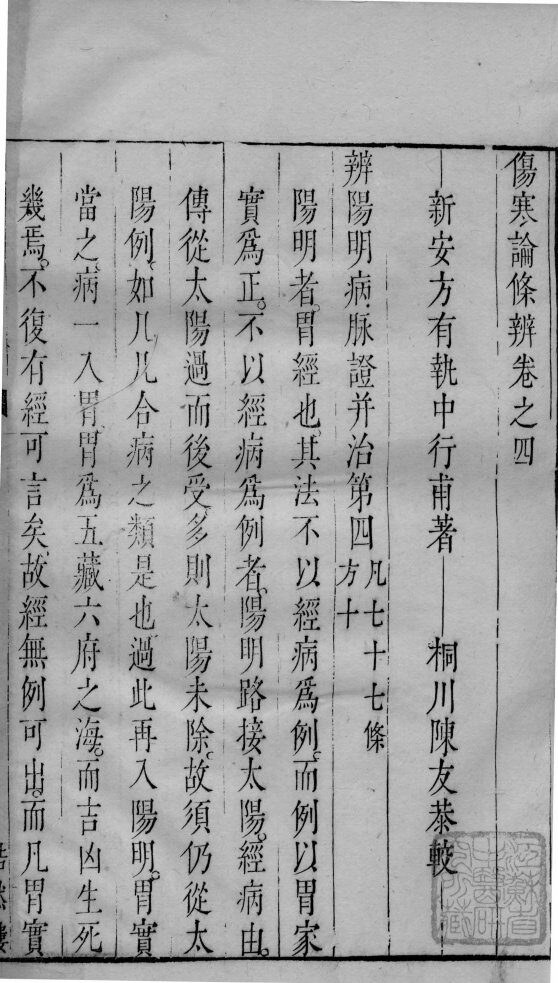 傷寒論條辨卷之四
新安方有執中行甫著 桐川陳友恭較
辨陽明病脉證并治第四 凡七十七條 方十
陽明者。胃經也其法不以經病爲例。而例以胃家
實爲正。不以經病爲例者。陽明路接太陽。經病由。
傳從太陽過而後受多則太陽未除。故須仍從太
陽例。如几几合病之類是也過此再入陽明。胃實
當之病一入胃胃爲五藏六府之海。而吉凶生死
幾焉。不復有經可言矣。故經無例可出。而凡胃實
江蘇省中醫研究所藏